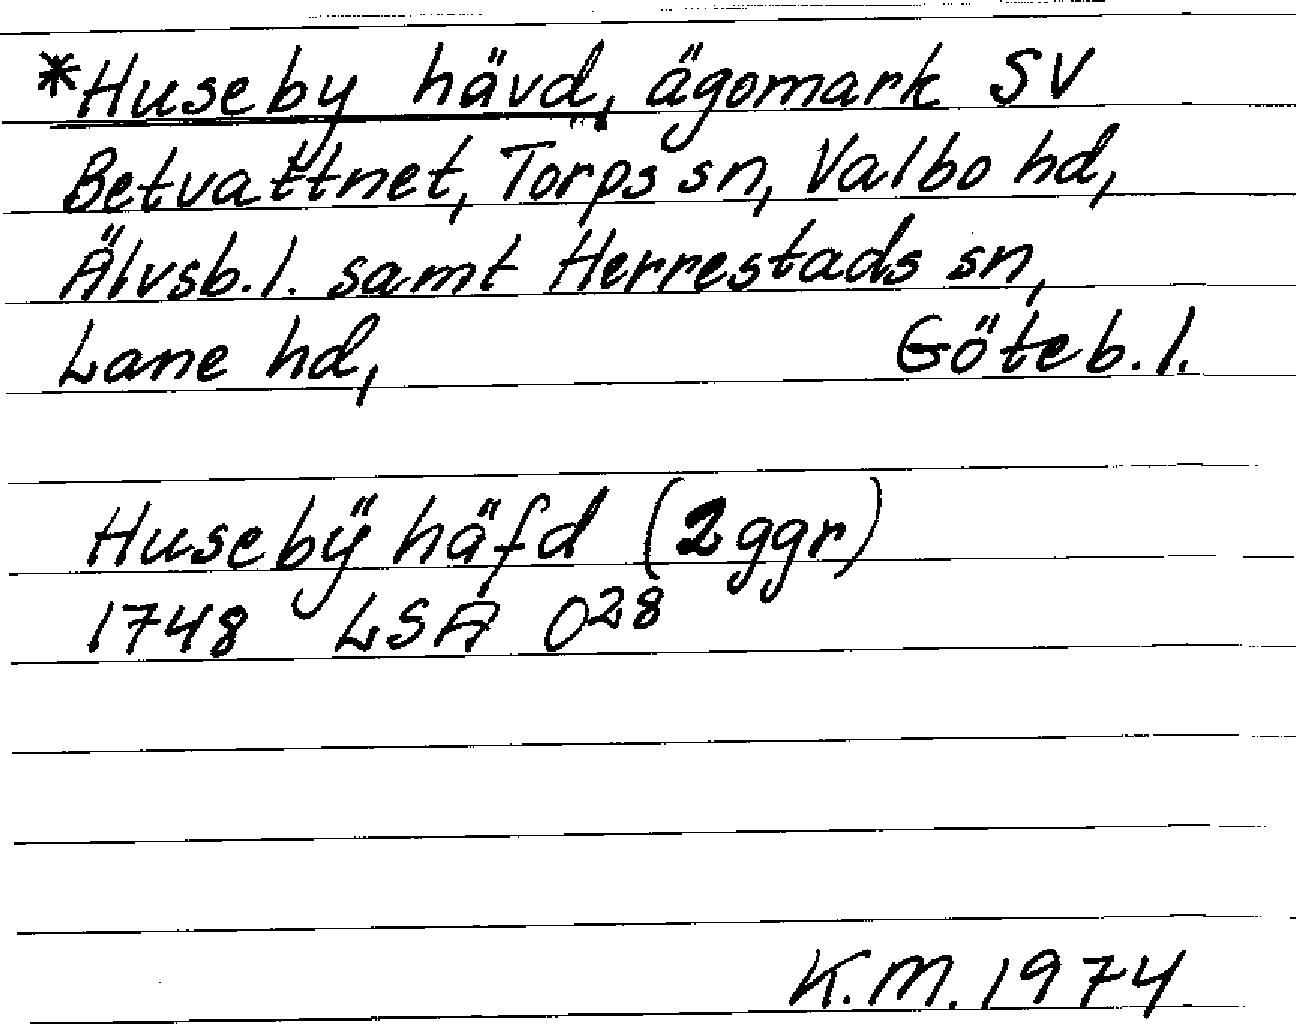 *Huseby hävd, ägomark SV
Betvattnet, Törps sn, Valbo hd,
Älvsb.l. samt Herrestads sn,
Lane hd, Göteb.l.
Husebÿ häfd (2ggr)
1748 LSA O28
K.M. 1974